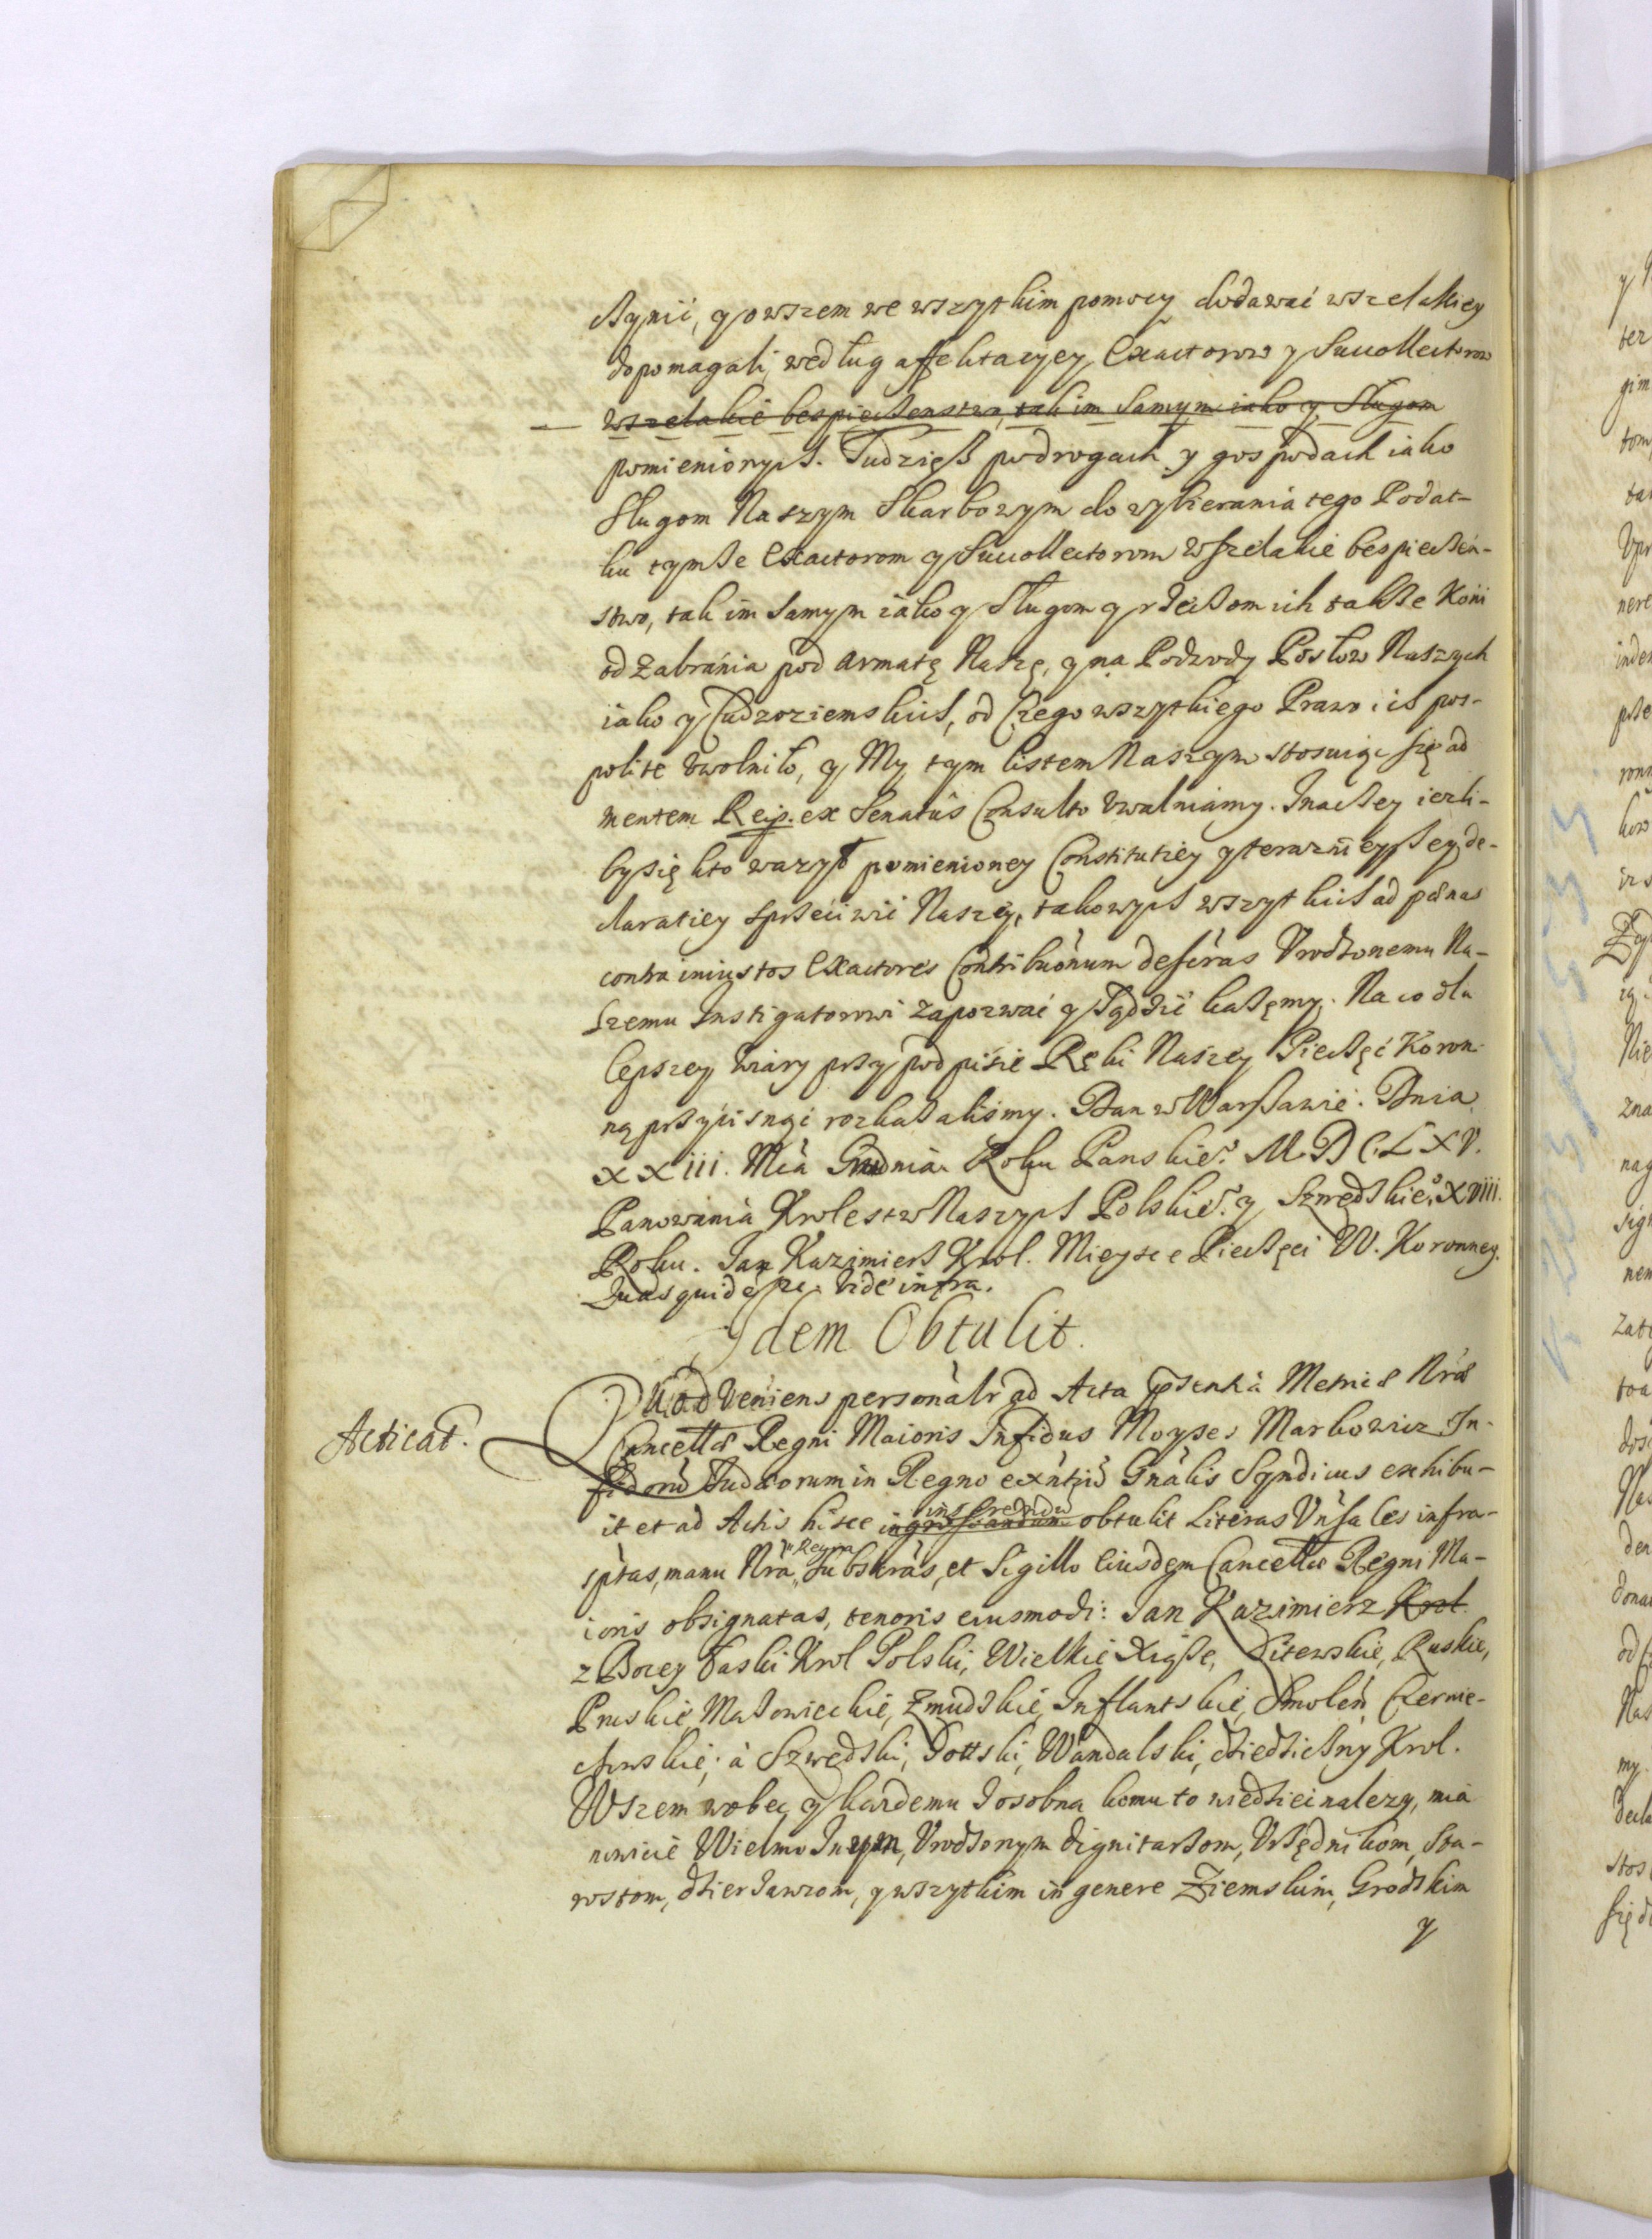 czynić, y owszem we wszytkim pomocy dodawać wszelakiey
dopomagali, według affektacyey Exactorow y Succollectorow
wszelakie bespieczenstwo, tak im samym iako y sługom
pomienionych. Tudzież po drogach y gospodach iako
Sługom Naszym Skarbowym do wybierania tego Podat-
ku tymże Exactorom y Succollectorom wszelakie bespieczeń-
stwo, tak im samym iako y sługom y rzeczom ich także Koni
od zabrania pod Armatę Naszę, y na Podwody Posłow Naszych
iako y Cudzoziemskich, od czego wszytkiego Prawo ich pos-
polite uwolniło, y My tym listem Naszym stosuiąc się ad
mentem Reip. ex Senatûs Consulto uwalniamy. Inaczey ieżli-
by się kto ważył pomienioney Constitutiey y teraznieyszey de-
claratiey sprzeciwić Naszey, takowych wszytkich ad pœnas
contra iniustos Exactores Contribuonum descras Vrodzonemu Na-
szemu Instigatorowi zapozwać y sądzić każemy. Na co dla
lepszey wiary przy podpisie Ręki Naszey Pieczęć Koron-
ną przycisnąć rozkazalismy. Dan w Warszawie. Dnia
XXiii. Mca Grudnia Roku Panskieo. M.D.C.LXV.
Panowania Krolestw Naszych Polskieo. y Szwedskieo. XViii.
Roku. Jan Kazimierz Krol. Mieysce Pieczęci W. Koronney.
Quas quidē etc. Vide infra.
Idem Obtulit.
Acticat.
Quod Veniens personalr ad Acta psentia Metricæ Nræ
Cancellæ Regni Maioris Infidus Moyses Markowicz In-
fidorū Judæorum in Regno exntiū Gnalis Syndicus exhibu-
it et ad Actis hisce ingrossandum inserendū obtulit Literas Vnsales infra-
sptas, manu Nra Regia subscras, et Sigillo eiusdem Cancellæ Regni Ma-
ioris obsignatas, tenoris eiusmodi: Jan Kazimierz Krol
z Bozey łaski Krol Polski, Wielkie Xiąże, Litewskie, Ruskie,
Pruskie, Mazowieckie, Zmudzkie, Inflantskie, Smolen, Czernie-
chowskie; à Szwedzki, Gottski, Wandalski, dziedziczny Krol.
Wszem wobec y każdemu z osobna komu to wiedziec nalezy, mia
nowicie Wielmożnym, Vrodzonym Dignitarzom, Vrzędnikom, Sta-
rostom, dzierżawcom, y wszytkim in genere Ziemskim, Grodzkim
y